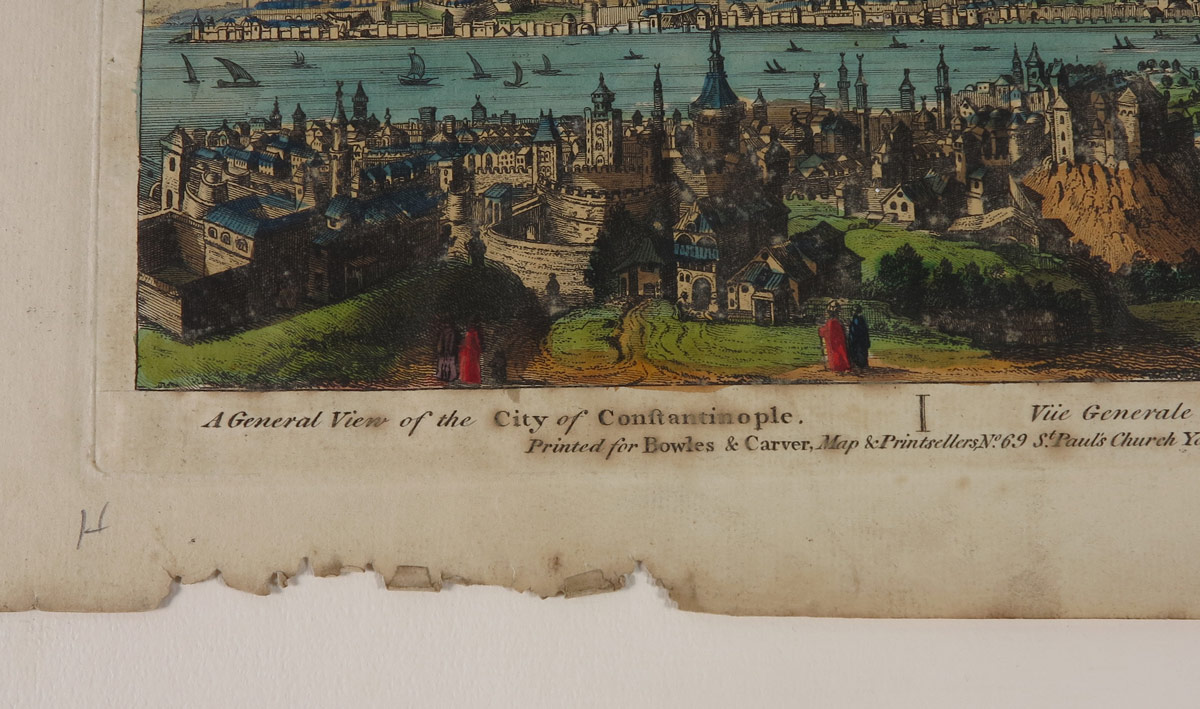 A General View of the City of Conſtantinople. I Vüe Generale
Printed for Bowles & Carver, Map & Printsellers, No. 69 St. Paul's Church
H